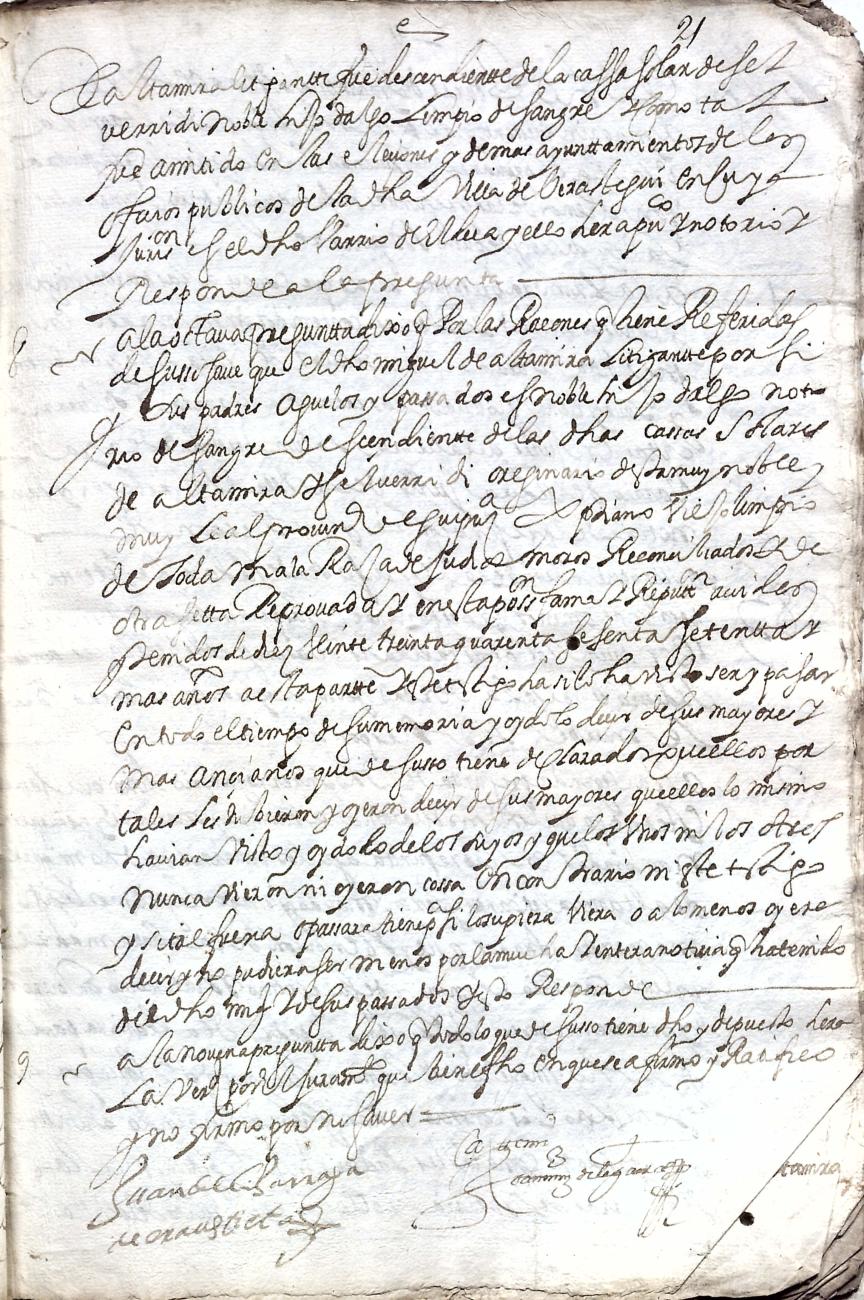 21
de altamira litigantte fue descendientte de la cassa solar de sel
verridi noble hijo dalgo limpio de sangre y como tal
fue amitido en las eleciones y demas ayunttamientos de los
officios publicos de la dha Villa de Verastegui en cuya
Jurison es el dho Varrio de Eldua y ello hera puco y notorio y
Responde a la pregunta
8 a la octava preguntta dixo q Por las Raçones q tiene Referidas
de susso save que el dho miguel de altamira Litigantte por si
y sus padres Aguelos y passados es noble hijo dalgo noto
rio de sangre descendientte de las dhas cassas solares
de altamira y selverridi oreginario desta muy noble y
muy Leal provinᵃ de guipuzᵃ Xptiano Viejo limpio
de toda mala Raza de Judios moros Reconciliados y de
otra setta Reprovada y en esta posson fama y Reputton avidos
y tenidos de diez Veinte treinta quarenta sesenta setentta y
mas años a esta partte y este tºgo ha silo ha visto ser y pasar
En todo el tiempo de su memoria y oydolo decir de sus mayores y
mas Ancianos que de susso tiene declarado y que ellos por
tales les tubieron y oyeron decir de sus mayores que ellos lo mismo
havian Visto y oydo de los suyos y que los Unos ni los otros
nunca vieron ni oyeron cossa En contrario ni este testigo
y si tal fuera o passara tiene pᵃ si lo supiera Viera o a lo menos oyera
decir y no pudiera ser menos por la mucha y entera noticia q ha tenido
del dho migl y de sus passados y esto Responde
9 a la novena preguntta dixo q todo lo que de susso tiene dho y depuesto hera
La Verd por el Juramto que tiene fho en que se afirmo y Ratifico
y no firmo por no saver
Juan de Larraga
Antte mi
de oraustieta
tamira